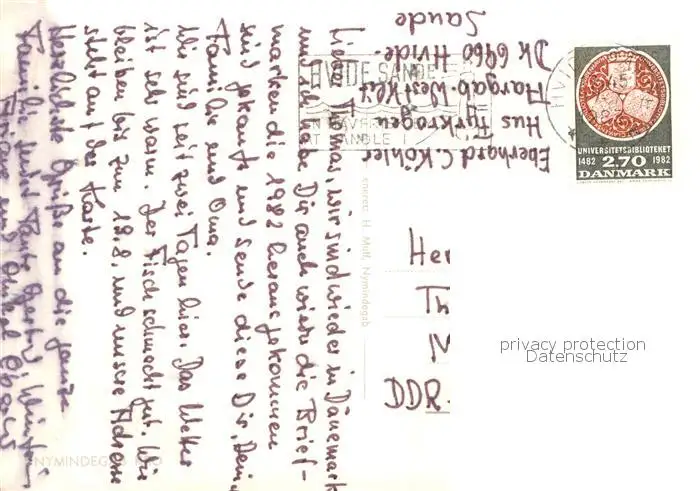 Lieber Thomas, wir sind wieder in Dänemark
und ich habe Dir auch wieder die Brief-
marken die 1982 herausgekommen
sind gekauft und sende diese Dir, Dein
Familie und Oma.
Wir sind seit zwei Tagen hier. Das Wetter
ist sehr warm. Der Fisch schmeckt gut. Wir
bleiben bis zum 19.8. und unsere Adresse
steht auf der Karte.
Herzlichste Grüße an die ganze
Familie Tante
und Onkel
Eberhard C. Köhler
Hus Fyrkrogen
Hargab-Westklit
DK 6960 Hvide-
Sande
HVIDE SANDE
UNIVERSITETSBIBLIOTEKET
1482 2.70 1982
DANMARK
Her
Th
N
DDR-
privacy protection
Datenschutz
eneret: H. Müll, Nymindegab
NYMINDEGAB KRO